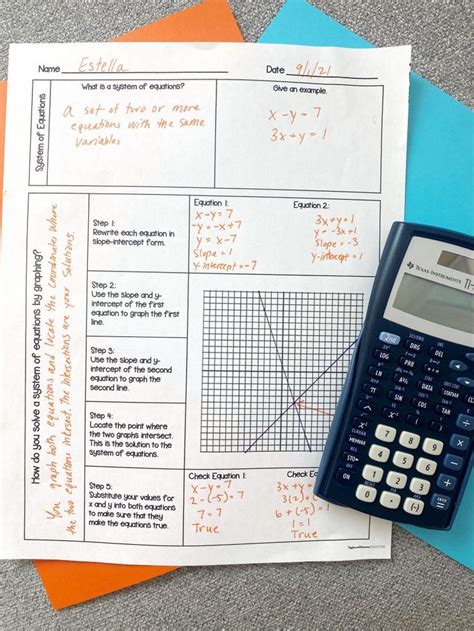 Name Estella Date 9/1/21
System of Equations
What is a system of equations?
a set of two or more
equations with the same
variables
Give an example.
x - y = 7
3x + y = 1
How do you solve a system of equations by graphing?
You graph both equations and locate the coordinates where
the two equations intersect. The intersections are your solutions.
Step 1:
Rewrite each equation in
slope-intercept form.
Equation 1:
x - y = 7
-y = -x + 7
y = x - 7
Slope = 1
y-intercept = -7
Equation 2:
3x + y = 1
y = -3x + 1
Slope = -3
y-intercept = 1
Step 2:
Use the slope and y-
intercept of the first
equation to graph the first
line.
Step 3:
Use the slope and y-
intercept of the second
equation to graph the
second line.
Step 4:
Locate the point where
the two graphs intersect.
This is the solution to the
system of equations.
Step 5:
Substitute your values for
x and y into both equations
to make sure that they
make the equations true.
Check Equation 1:
x - y = 7
2 - (-5) = 7
7 = 7
True
Check Equation
3x + y =
3(2) +
6 + (-5) = 1
1 = 1
True
TEXAS INSTRUMENTS
TI-
2nd
DRG
DEL
LOG
PRB
LN
MEMVAR
STO▸
ON
7
8
9
4
5
6
1
2
3
0